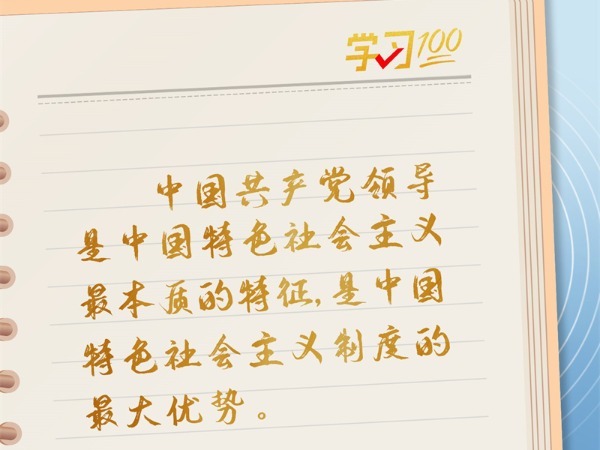 学习100
中国共产党领导
是中国特色社会主义
最本质的特征,是中国
特色社会主义制度的
最大优势。